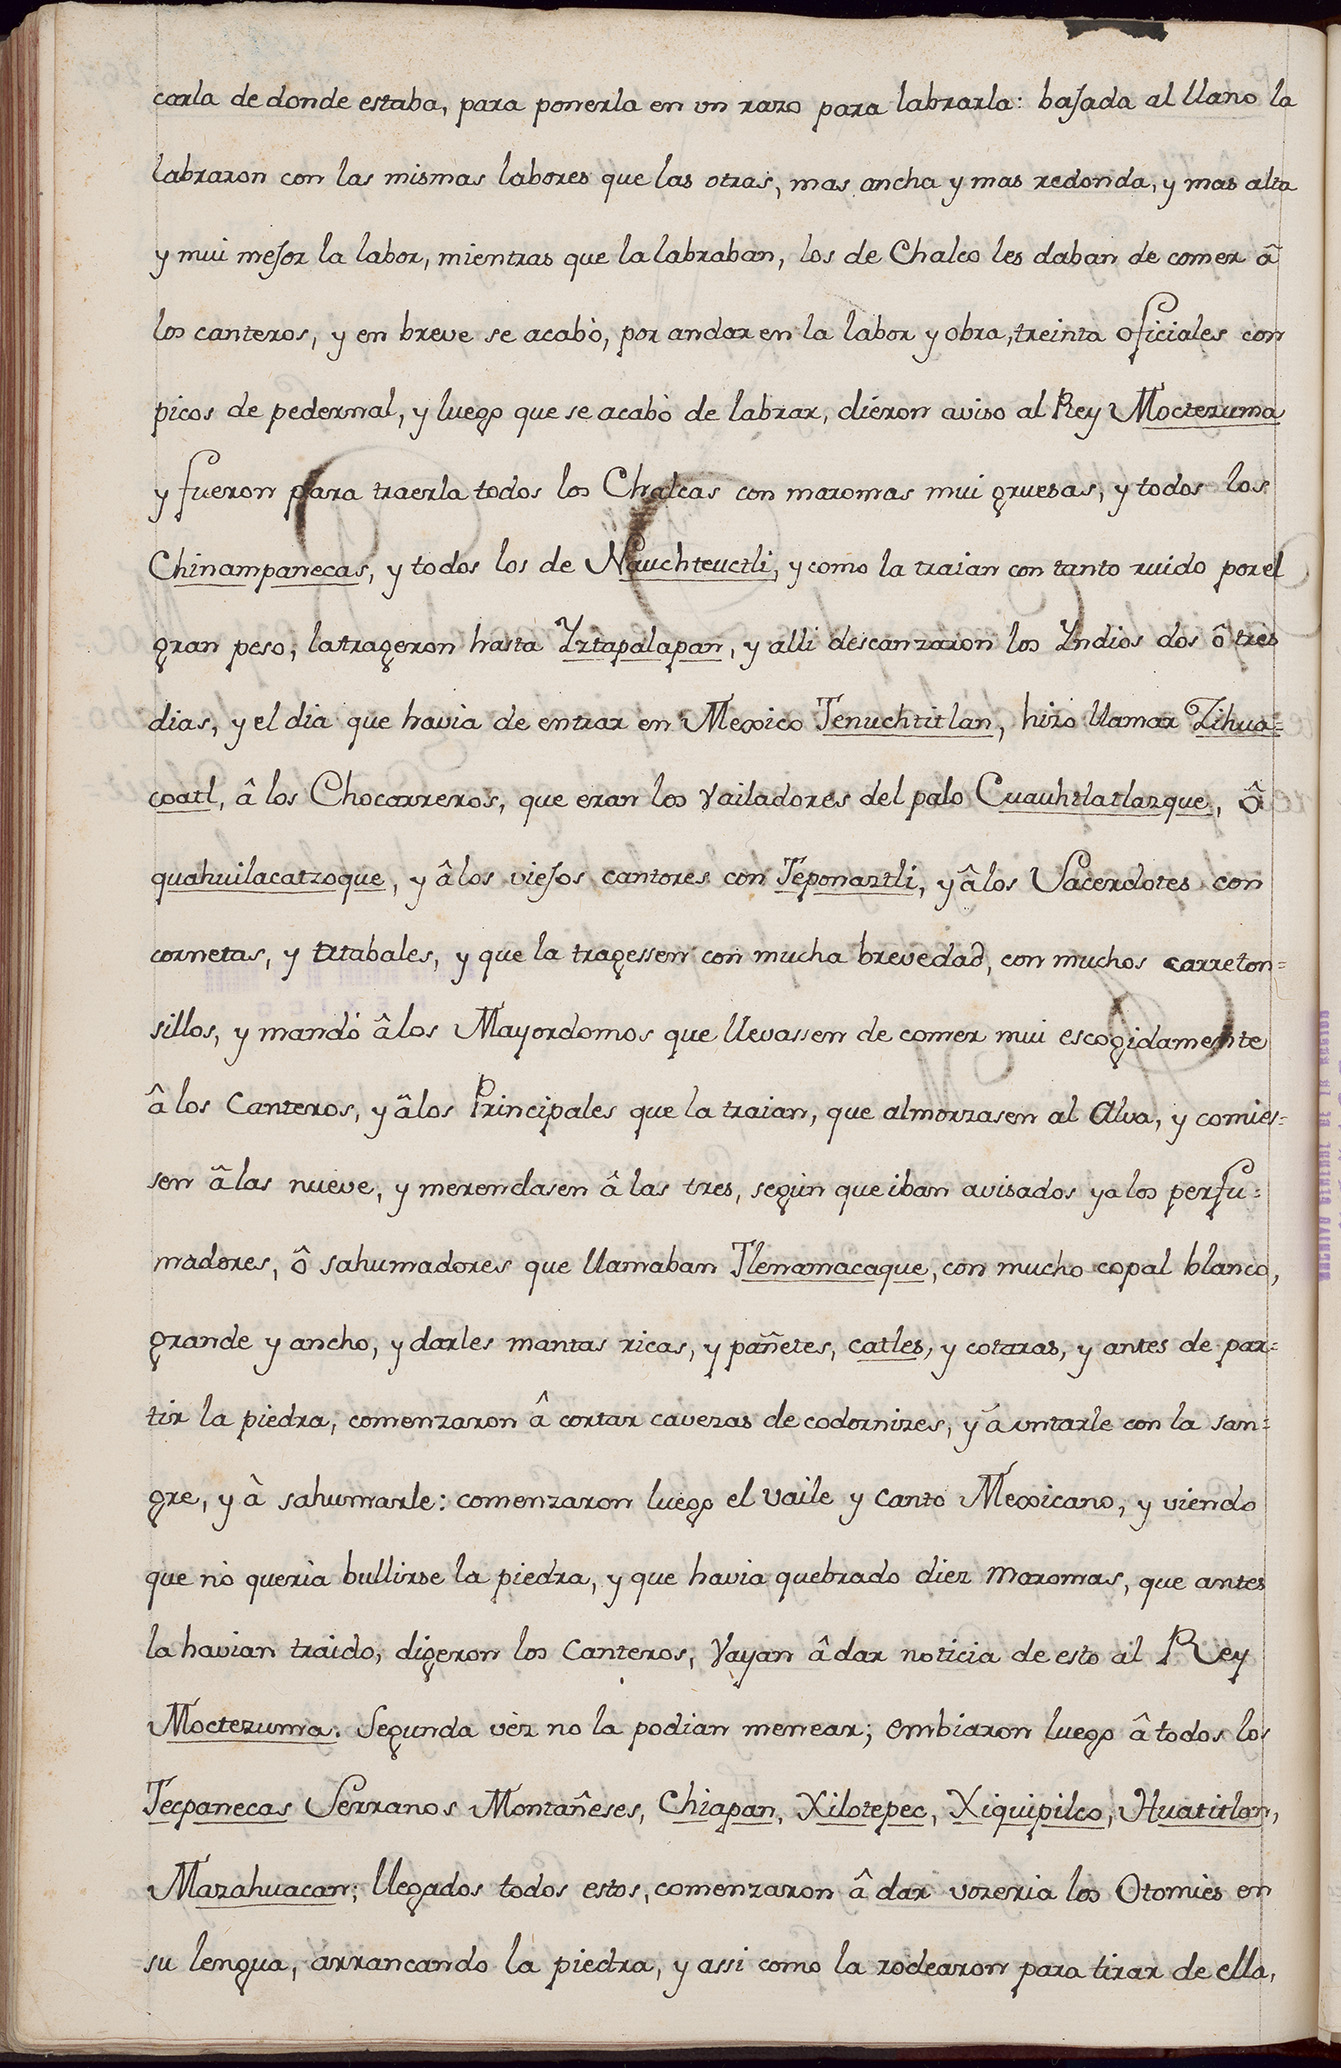 carla de donde estaba, para ponerla en un razo para labrarla: bajada al llano la
labraron con las mismas labores que las otras, mas ancha y mas redonda, y mas alta
y mui mejor la labor, mientras que la labraban, los de Chalco les daban de comer â
los canteros, y en breve se acabò, por andar en la labor y obra, treinta oficiales con
picos de pedernal, y luego que se acabò de labrar, dieron aviso al Rey Moctezuma
y fueron para traerla todos los Chalcas con maromas mui gruesas, y todos los
Chinampanecas, y todos los de Nauchteuctli, y como la traian con tanto ruido por el
gran peso, la trageron hasta Yztapalapan, y alli descanzaron los Yndios dos ô tres
dias, y el dia que havia de entrar en Mexico Tenuchtitlan, hizo llamar Zihua=
coatl, â los Chocarreros, que eran los Vailadores del palo Cuauhtlatlazque, ô
quahuilacatzoque, y â los viejos cantores con Teponaztli, y â los Sacerdotes con
cornetas, y atabales, y que la tragessen con mucha brevedad, con muchos carreton=
sillos, y mandó â los Mayordomos que llevassen de comer mui escogidamente
â los Canteros, y â los Principales que la traian, que almorzasen al Alva, y comies=
sen â las nueve, y merendasen â las tres, segùn que iban avisados ya los perfu=
madores, ô sahumadores que llamaban Tlenamacaque, con mucho copal blanco,
grande y ancho, y darles mantas ricas, y pañetes, catles, y cotaras, y antes de par=
tir la piedra, comenzaron â cortar cavezas de codornizes, y â untarle con la san=
gre, y à sahumarle: comenzaron luego el Vaile y Canto Mexicano, y viendo
que nò queria bullirse la piedra, y que havia quebrado diez Maromas, que antes
la havian traido, digeron los Canteros, Vayan â dar noticia de esto al Rey
Moctezuma. Segunda vèz no la podian menear; embiaron luego â todos los
Tecpanecas Serranos Montañeses, Chiapan, Xilotepec, Xiquipilco, Huatitlan,
Mazahuacan; llegados todos estos, comenzaron â dar vozeria los Otomiès en
su lengua, arrancando la piedra, y assi como la rodearon para tirar de ella,
ARCHIVO GENERAL DE LA NACION